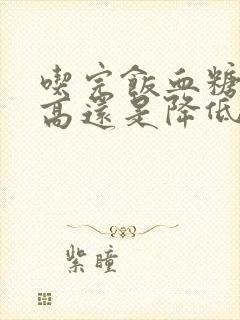 喫完飯血糖
高還是降低
紫瞳